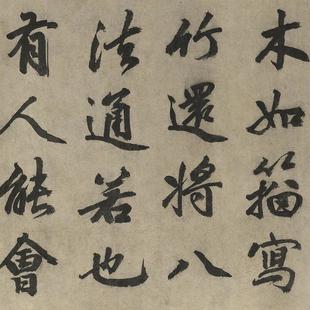 木如籀寫
竹還將八
法通若也
有人能會